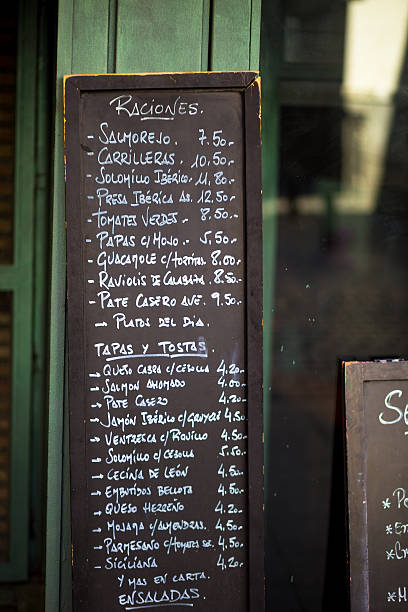 RACIONES.
- SALMOREJO. 7.50
- CARRILLERAS. 10.50.-
- SOLOMILLO IBÉRICO. 11,80.-
- PRESA IBÉRICA AS. 12.50.-
- TOMATES VERDES. 8.50.-
- PAPAS C/MOJO. 5.50.-
- GUACAMOLE C/TORTITAS. 8.00.-
- RAVIOLIS DE CALABAZA. 8.50.-
- PATE CASERO AVE. 9.50.-
→ PLATOS DEL DIA.
TAPAS Y TOSTAS.
→ QUESO CABRA C/CEBOLLA 4.20.-
→ SALMON AHUMADO 4.00.-
→ PATE CASERO 4.20.-
→ JAMÓN IBÉRICO C/GRUYÉRE 4.50
→ VENTRESCA C/PIQUILLO 4.50.-
→ SOLOMILLO C/CEBOLLA 5.50.-
→ CECINA DE LEÓN 4.50.-
→ EMBUTIDOS BELLOTA 4.50.-
→ QUESO HERREÑO 4.20.-
→ MOJAMA C/ALMENDRAS. 4.50.-
→ PARMESANO C/TOMATE SE. 4.50.-
→ SICILIANA 4.20.-
Y MAS EN CARTA.
ENSALADAS.